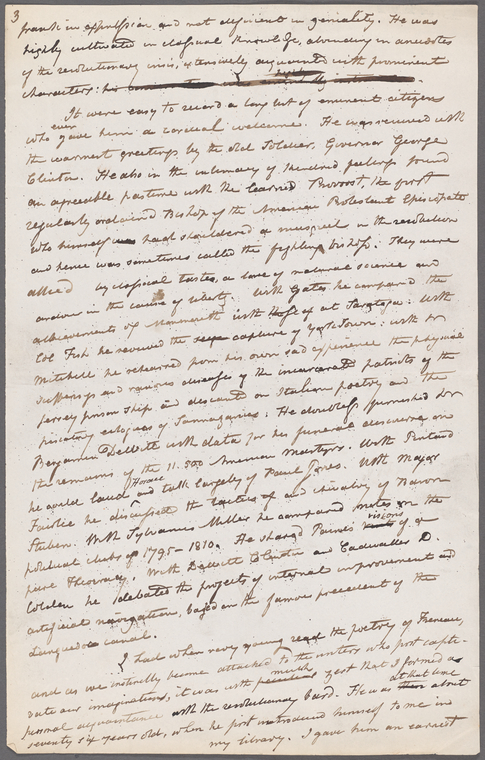 3
frank in expression, and not deficient in geniality. He was
highly cultivated in classical knowledge, abounding in anecdotes
of the revolutionary crisis, extensively acquainted with prominent
characters:
It were easy to record a long list of eminent citizens
who ever gave him a cordial welcome. He was received with
the warmest greetings by the old soldier, Governor George
Clinton. He also in the intimacy of kindred feelings found
an agreeable pastime with the learned Provost, the first
regularly ordained Bishop of the American Protestant Episcopate
who himself had shouldered a musquet in the revolution
and hence was sometimes called the fighting bishop. They were
allied by classical tastes, a love of natural science and
ardour in the cause of liberty. With Gates he compared the
achievements of Monmouth with those of at Saratoga: With
Col Fish he reviewed the capture of York Town: with Dr
Mitchill he rehearsed from his own sad experience the physical
sufferings and various diseases of the incarcerated patriots of the
Jersey prison ship and descanted on Italian poetry and the
piscatory eclogues of Sannazarius. He doubtless furnished Dr
Benjamin Dewitt with data for his funeral discourse on
the remains of the 11.500 American Martyrs. With Pintard
he could laud Horace and talk largely of Paul Jones. With Major
Fairlie he discussed the tactics of and chivalry of Baron
Steuben. With Sylvanus Miller he compared notes on the
political clubs of 1795-1810. He shared Paine's visions of a
pure theocracy. With Dewitt Clinton and Cadwallader D.
Colden he debated the projects of internal improvement and
artificial navigation, based on the famous precedent of the
Languedoc canal.
I had when very young read the poetry of Freneau,
and as we instinctly become attached to the writers who first capti-
vate our imaginations, it was with much zest that I formed a
personal acquaintance with the revolutionary bard. He was at that time about
seventy six years old, when he first introduced himself to me in
my library. I gave him an earnest